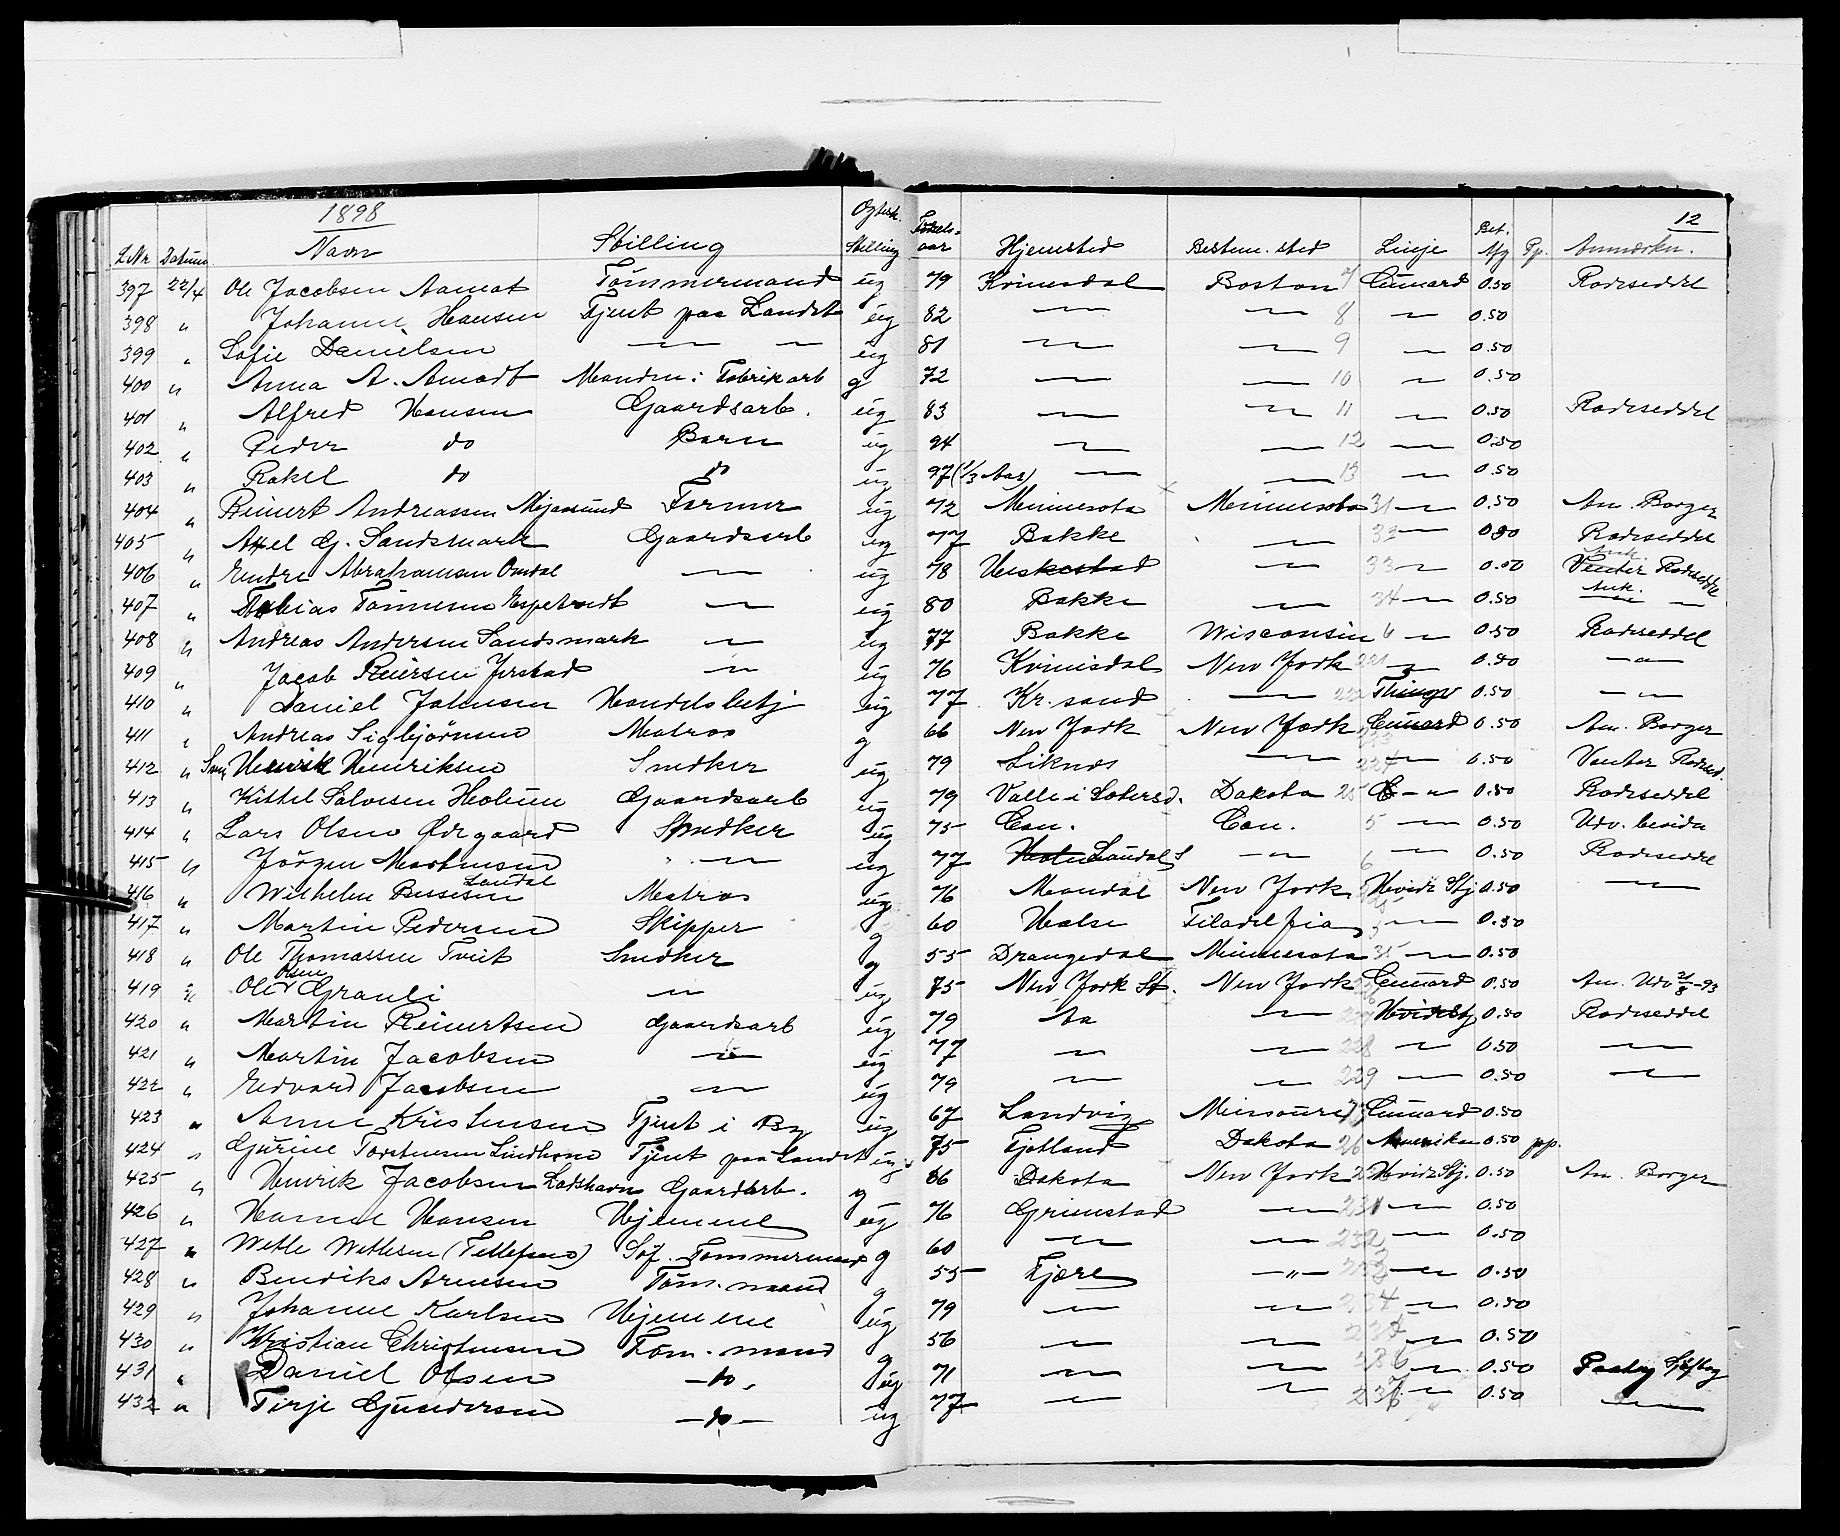 1898
12
L.Nr. Datum Navn Stilling Ogtesk. Stilling Fødels-aar Hjemsted Bestem. sted Linje Bet. Afg Pp. Anmærkn.
397 22/4 Ole Jacobsen Aamot Tømmermand ug 79 Kvinesdal Boston 7 Cunard 0.50 Rodeseddel
398 " Johanne Hansen Tjent paa Landet ug 82 — — 8 — 0.50
399 " Sofie Danielsen — — ug 81 — — 9 — 0.50
400 " Anna A. Amodt Manden: Fabrikarb g 72 — — 10 — 0.50
401 " Alfred Hansen Gaardsarb. ug 83 — — 11 — 0.50 Rodeseddel
402 " Peder do Barn ug 94 — — 12 — 0.50
403 " Rakel do do ug 97 (1/3 Aar) — — 13 — 0.50
404 " Reinert Andreassen Mejasund Farmer ug 72 Minnesota Minnesota 31 — 0.50 Am. Borger
405 " Axel G. Sandsmark Gaardsarb ug 77 Bakke — 32 — 0.50 Rodeseddel
406 " Endre Abrahamsen Omdal — ug 78 — 33 — 0.50 Venter Rodeseddel
407 " Tobias Tønnesen Espetvedt — ug 80 Bakke — 34 — 0.50 Ank. —
408 " Andreas Andersen Sandsmark — ug 77 Bakke Wisconsin 6 — 0.50 Rodeseddel
409 " Jacob Reiersen Jerstad — ug 76 Kvinisdal New York 221 — 0.50 —"—
410 " Daniel Johnsen Handelsbetj ug 77 Kr. sand — 222 Thingv 0.50 —"—
411 " Andreas Sigbjørnsen Matros g 66 New York New York 223 Cunard 0.50 Am. Borger
412 " Sven Henrik Henriksen Snedker ug 79 Liknes — 224 — 0.50 Venter Rodesed.
413 " Kittel Salvesen Holmen Gaardsarb ug 79 Valle i Setersd. Dakota 25 — 0.50 Rodeseddel
414 " Lars Olsen Ødegaard Snedker ug 75 Can. Can. 5 — 0.50 Udv. bevidn
415 " Jørgen Mathisen — ug 77 Laudal S —"— 6 — 0.50 Rodeseddel
416 " Wilhelm Bessesen Laudal Matros ug 76 Mandal New York Hvide Stj 0.50 —
417 " Martin Pedersen Skipper g 60 Halse Filadelfia — 0.50
418 " Ole Thomassen Tveit Snedker g 55 Drangedal Minnesota 35 — 0.50
419 " Ole Olsen Grauli — ug 75 New York St. New York Cunard 0.50 Am. Udv 21/8 -93
420 " Martin Reinertsen Gaardsarb ug 79 Aa — 227 Hvidestj 0.50 Rodeseddel
421 " Martin Jacobsen — ug 77 — — 228 — 0.50 —
422 " Edvard Jacobsen — ug 79 — — 229 — 0.50 —
423 " Anne Kristensen Tjent i By ug 67 Landvig Missouri Cunard 0.50
424 " Gurine Torstensen Lindhom Tjent paa Landet ug 75 Fjotland Dakota 26 Amerika 0.50 pp.
425 " Henrik Jacobsen Ladshavn Gaardarb. g 66 Dakota New York Hvide Stj. 0.50 Am. Borger
426 " Hanne Hansen Hjemme ug 76 Grimstad — 231 — 0.50
427 " Wetle Wetlesen (Tellefsens) Søf. Tømmermand g 60 — — 232 — 0.50
428 " Bendiks Arnesen Tøm. mand g 55 Fjære —"— 233 — 0.50
429 " Johanne Karlsen Hjemme ug 79 — — 234 — 0.50
430 " Kristian Christensen Tøm. mand g 56 — — 235 — 0.50
431 " Daniel Olsen —do— ug 71 — — 236 — 0.50
432 " Terje Gundersen —do— ug 77 — — 237 — 0.50 —